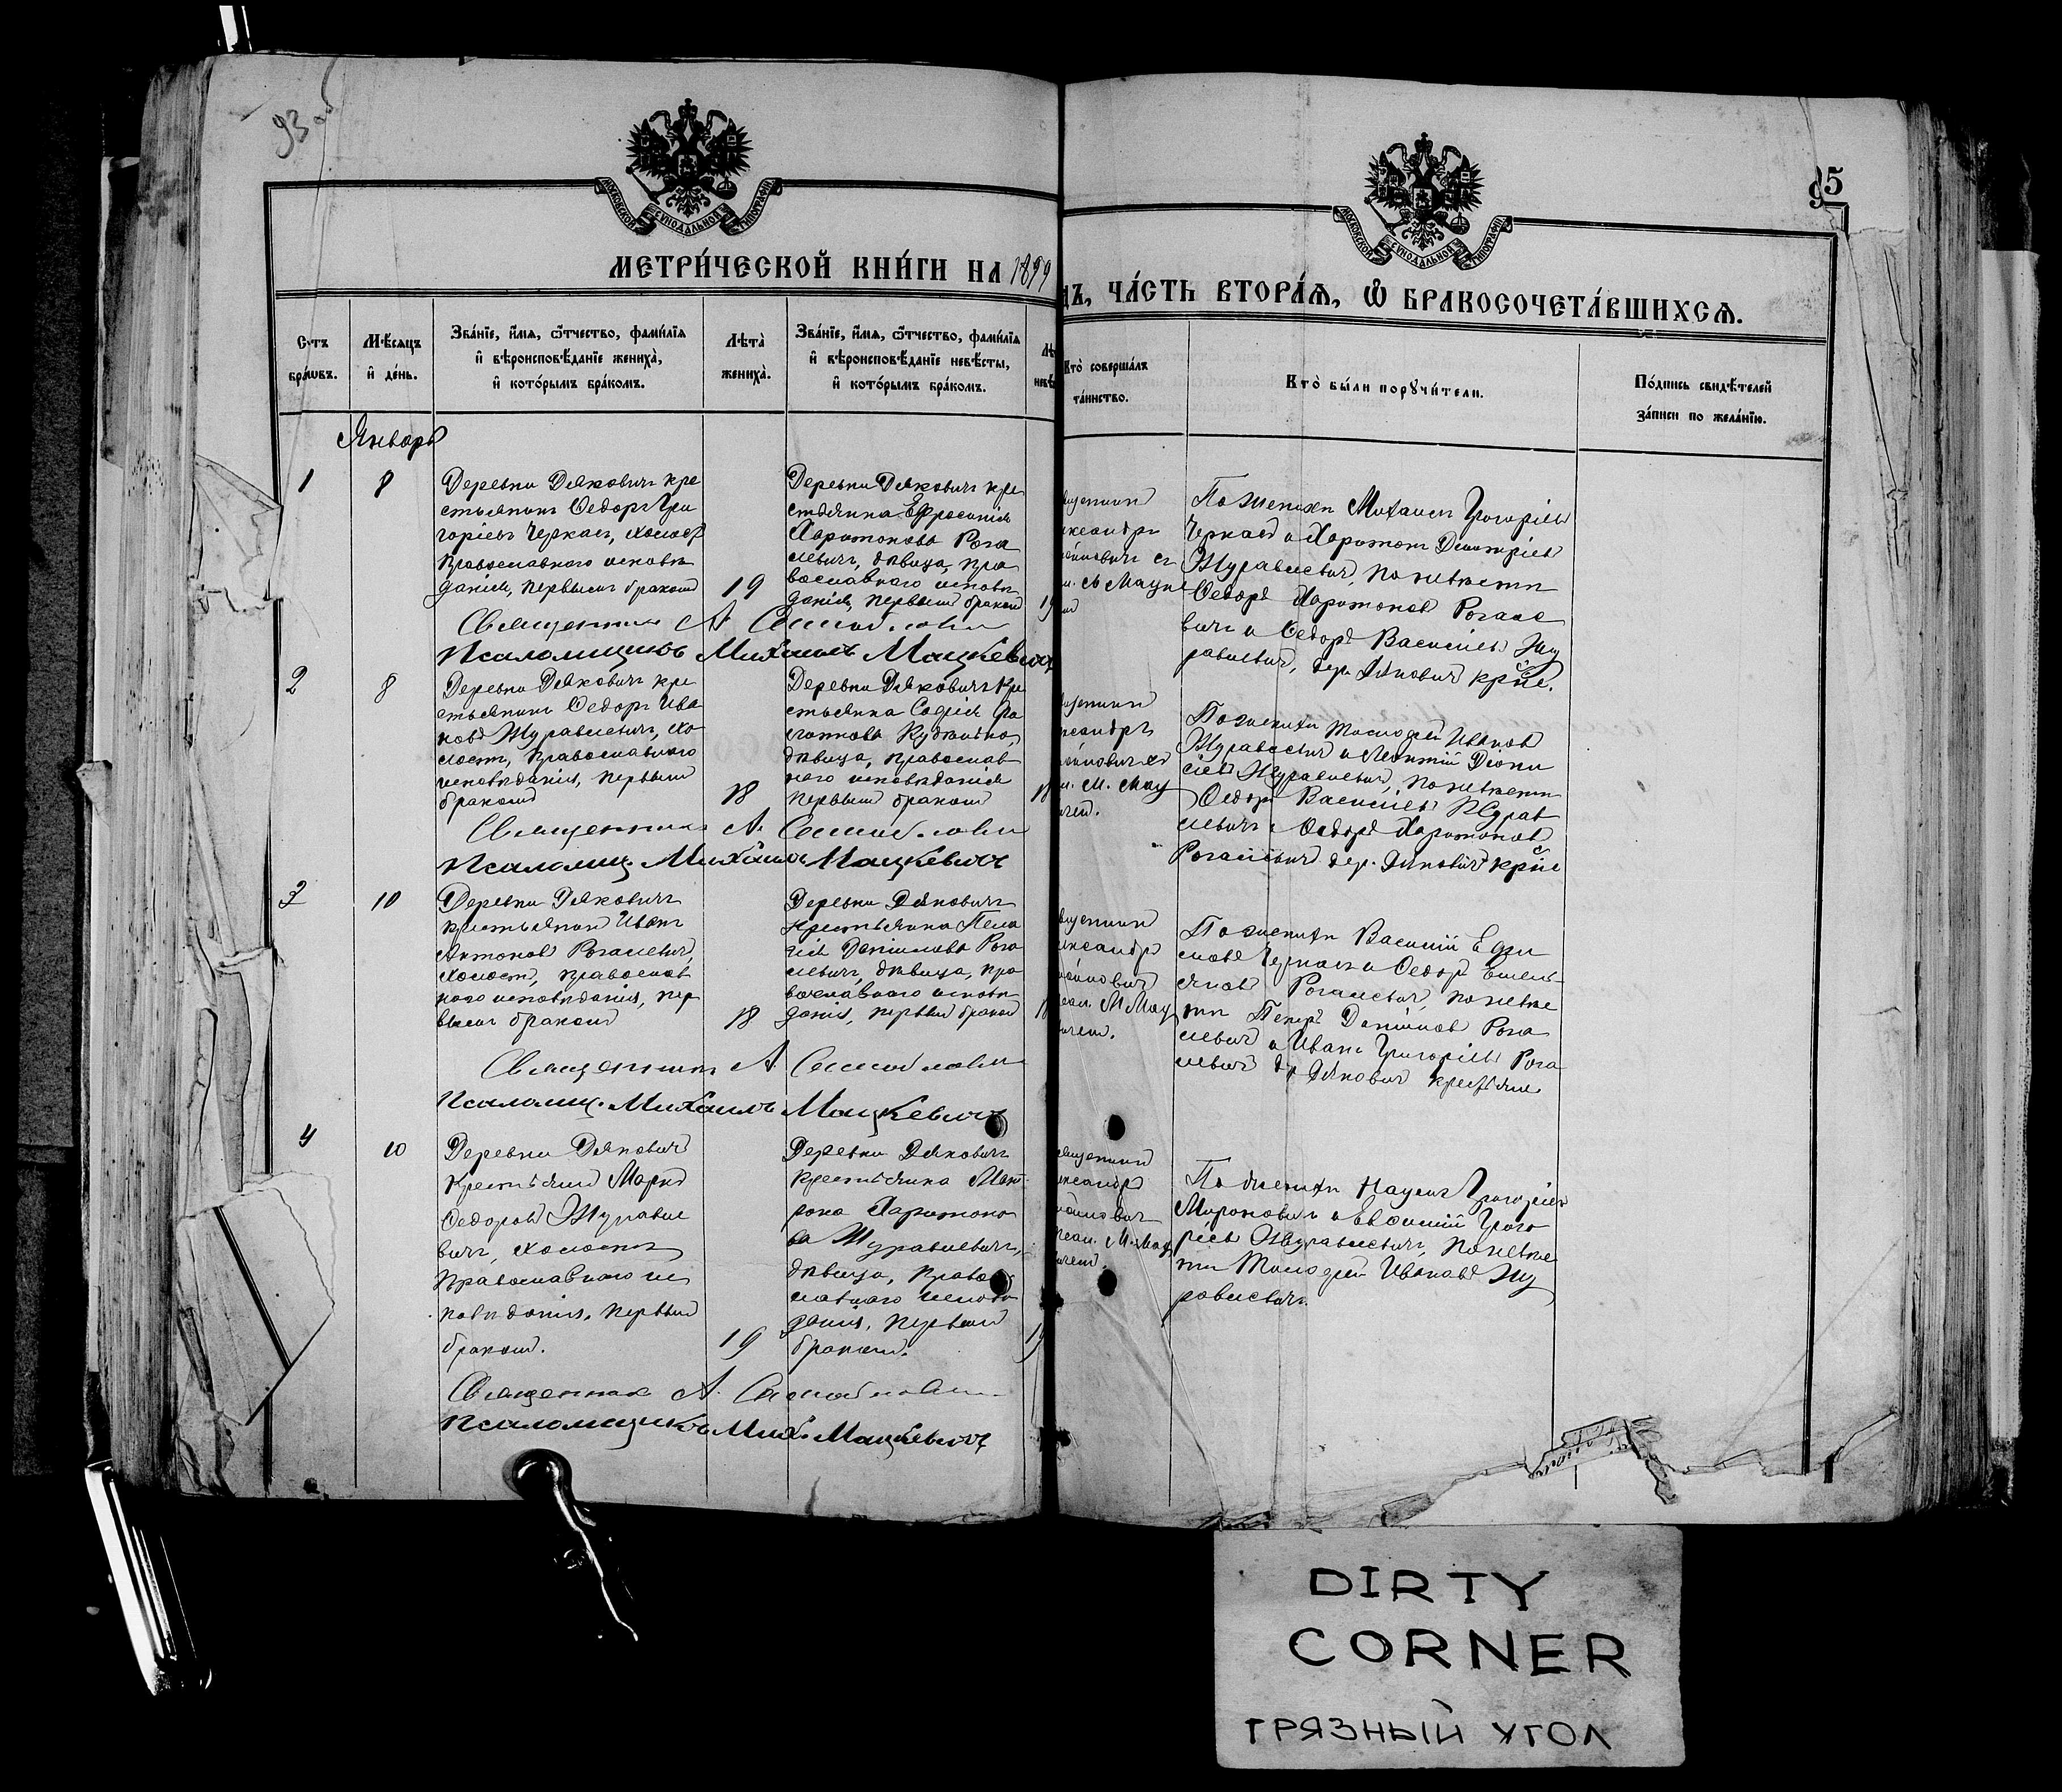 93 об
95
МОСКОВСКОЙ СѴНОДАЛЬНОЙ ТИПОГРАФІИ
МОСКОВСКОЙ СѴНОДАЛЬНОЙ ТИПОГРАФІИ
МЕТРИ́ЧЕСКОЙ КНИ́ГИ НА 1899
ДЪ, ЧА́СТЬ ВТОРА́Я, Ѽ БРАКОСОЧЕТА́ВШИХСЯ.
Счетъ
бра́ковъ.
Мѣ́сяцъ
и де́нь.
Зва́нїе, и́мя, ѻ́тчество, фами́лїя
и вѣроисповѣ́данїе жениха̀,
и кото́рымъ бра́комъ.
Лѣта̀
жениха̀.
Зва́нїе, и́мя, ѻ́тчество, фами́лїя
и вѣроисповѣ́данїе невѣ́сты,
и кото́рымъ бра́комъ.
Лѣ
невѣ
Кто̀ соверша́лъ
та́инство.
Кто̀ бы́ли порꙋчи́тели.
По́дпись свидѣ́телей
за́писи по жела́нїю.
Январь
1
8
Деревни Дяковичъ кре
стьянинъ Ѳедоръ Гри
горіевъ Черкасъ, холост
православнаго исповѣ
данія, первымъ бракомъ
19
Деревни Дяковичъ кре
стьянка Ефросинія
Харитонова Рога
левичъ, дѣвица, пра
вославнаго исповѣ
данія, первымъ бракомъ
19
По женихѣ Михаилъ Григоріевъ
Черкасъ и Харитонъ Димитріевъ
Журавлевичъ, по невѣстѣ
Ѳедоръ Харитоновъ Рогале
вичъ и Ѳедоръ Василіевъ Жу
равлевичъ, дер. Дяковичъ крне.
Священникъ А.
Псаломщикъ Михаилъ Мацкевичъ
2
8
Деревни Дяковичъ кре
стьянинъ Ѳедоръ Ива
новъ Журавлевичъ, хо
лостъ, православнаго
исповѣданія, первымъ
бракомъ
18
Деревни Дяковичъ кре
стьянка Софія
дѣвица, православ
наго исповѣданія
первымъ бракомъ
18
По женихѣ Тимоѳей Ивановъ
Журавлевичъ и Леонтій Діони
сіевъ Журавлевичъ, по невѣстѣ
Ѳедоръ Василіевъ Журав
левичъ и Ѳедоръ Харитоновъ
Рогалевичъ дер. Дяковичъ крне
Священникъ А.
Псаломщ. Михаилъ Мацкевичъ
3
10
Деревни Дяковичъ
крестьянинъ Иванъ
Антоновъ Рогалевичъ,
холостъ, православ
наго исповѣданія, пер
вымъ бракомъ
18
Деревни Дяковичъ
крестьянка Пела
гія Даніилова Рога
левичъ, дѣвица, пра
вославнаго исповѣ
данія, первымъ бракомъ
18
По женихѣ Василій
Черкасъ и Ѳедоръ Емель
яновъ Рогалевичъ, по невѣс
тѣ Петръ Даніиловъ Рога
левичъ и Иванъ Григоріевъ Рога
левичъ др Дяковичъ крестьяне
Священникъ А.
Псаломщ. Михаилъ Мацкевичъ
4
10
Деревни Дяковичъ
крестьянинъ Маркъ
Ѳедоровъ Журавле
вичъ, холостъ
православнаго ис
повѣданія, первымъ
бракомъ.
19
Деревни Дяковичъ
крестьянка Мат
рона Харитоно
ва Журавлевичъ,
дѣвица, право
славнаго исповѣ
данія, первымъ
бракомъ.
19
По женихѣ Наумъ Григоріевъ
Мироновичъ и Евсимій Григо
ріевъ Журавлевичъ, по невѣс
тѣ Тимоѳей Ивановъ Жу
равлевичъ.
Священник А.
Псаломщикъ Мих. Мацкевичъ
DIRTY
CORNER
ГРЯЗНЫЙ УГОЛ